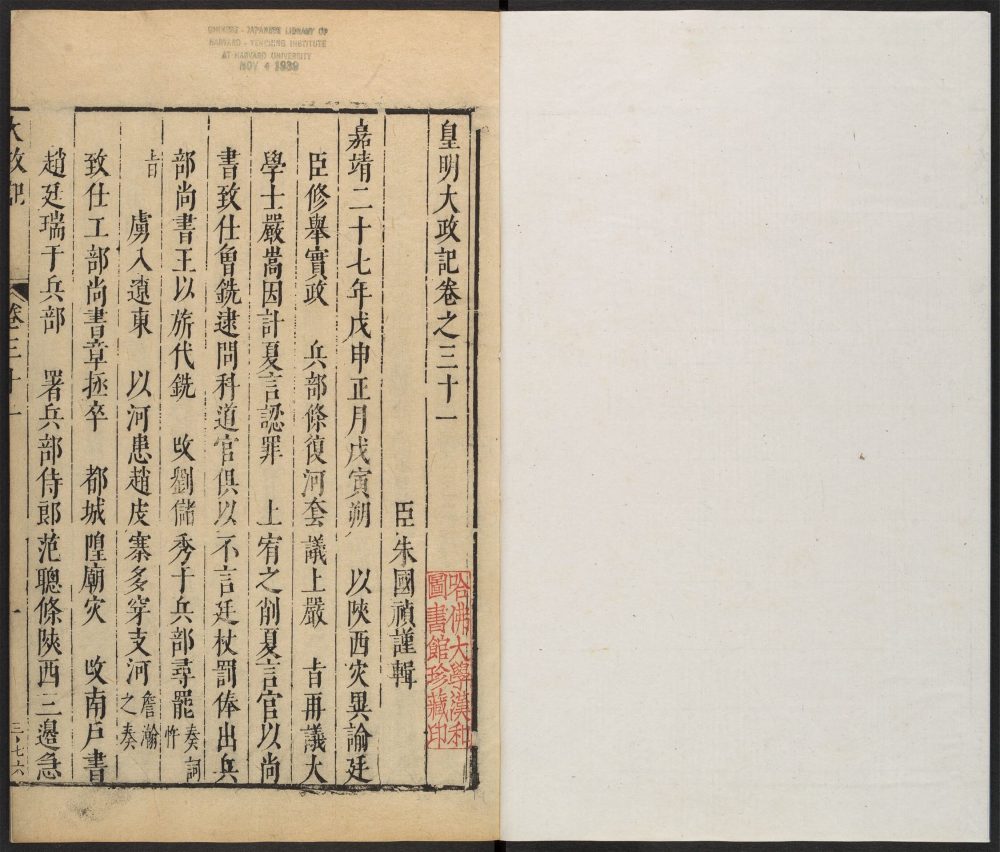 CHINESE - JAPANESE LIBRARY OF
HARVARD - YENCHING INSTITUTE
AT HARVARD UNIVERSITY
NOV 4 1939
皇明大政記卷之三十一
臣朱國禎謹輯
哈佛大學漢和
圖書館珍藏印
嘉靖二十七年戊申正月戊寅朔 以陝西灾異諭廷
臣修舉實政 兵部條復河套議上嚴 㫖再議大
學士嚴嵩因計夏言認罪 上宥之削夏言官以尚
書致仕曾銑逮問科道官俱以不言廷杖罰俸出兵
部尚書王以旂代銑 改劉儲秀于兵部尋罷奏詞忤
㫖 虜入遼東 以河患趙皮寨多穿支河詹瀚之奏
致仕工部尚書章拯卒 都城隍廟灾 改南戶書
趙廷瑞于兵部 署兵部侍郎范聰條陝西三邊急
大政記 卷三十一 一
三·七六